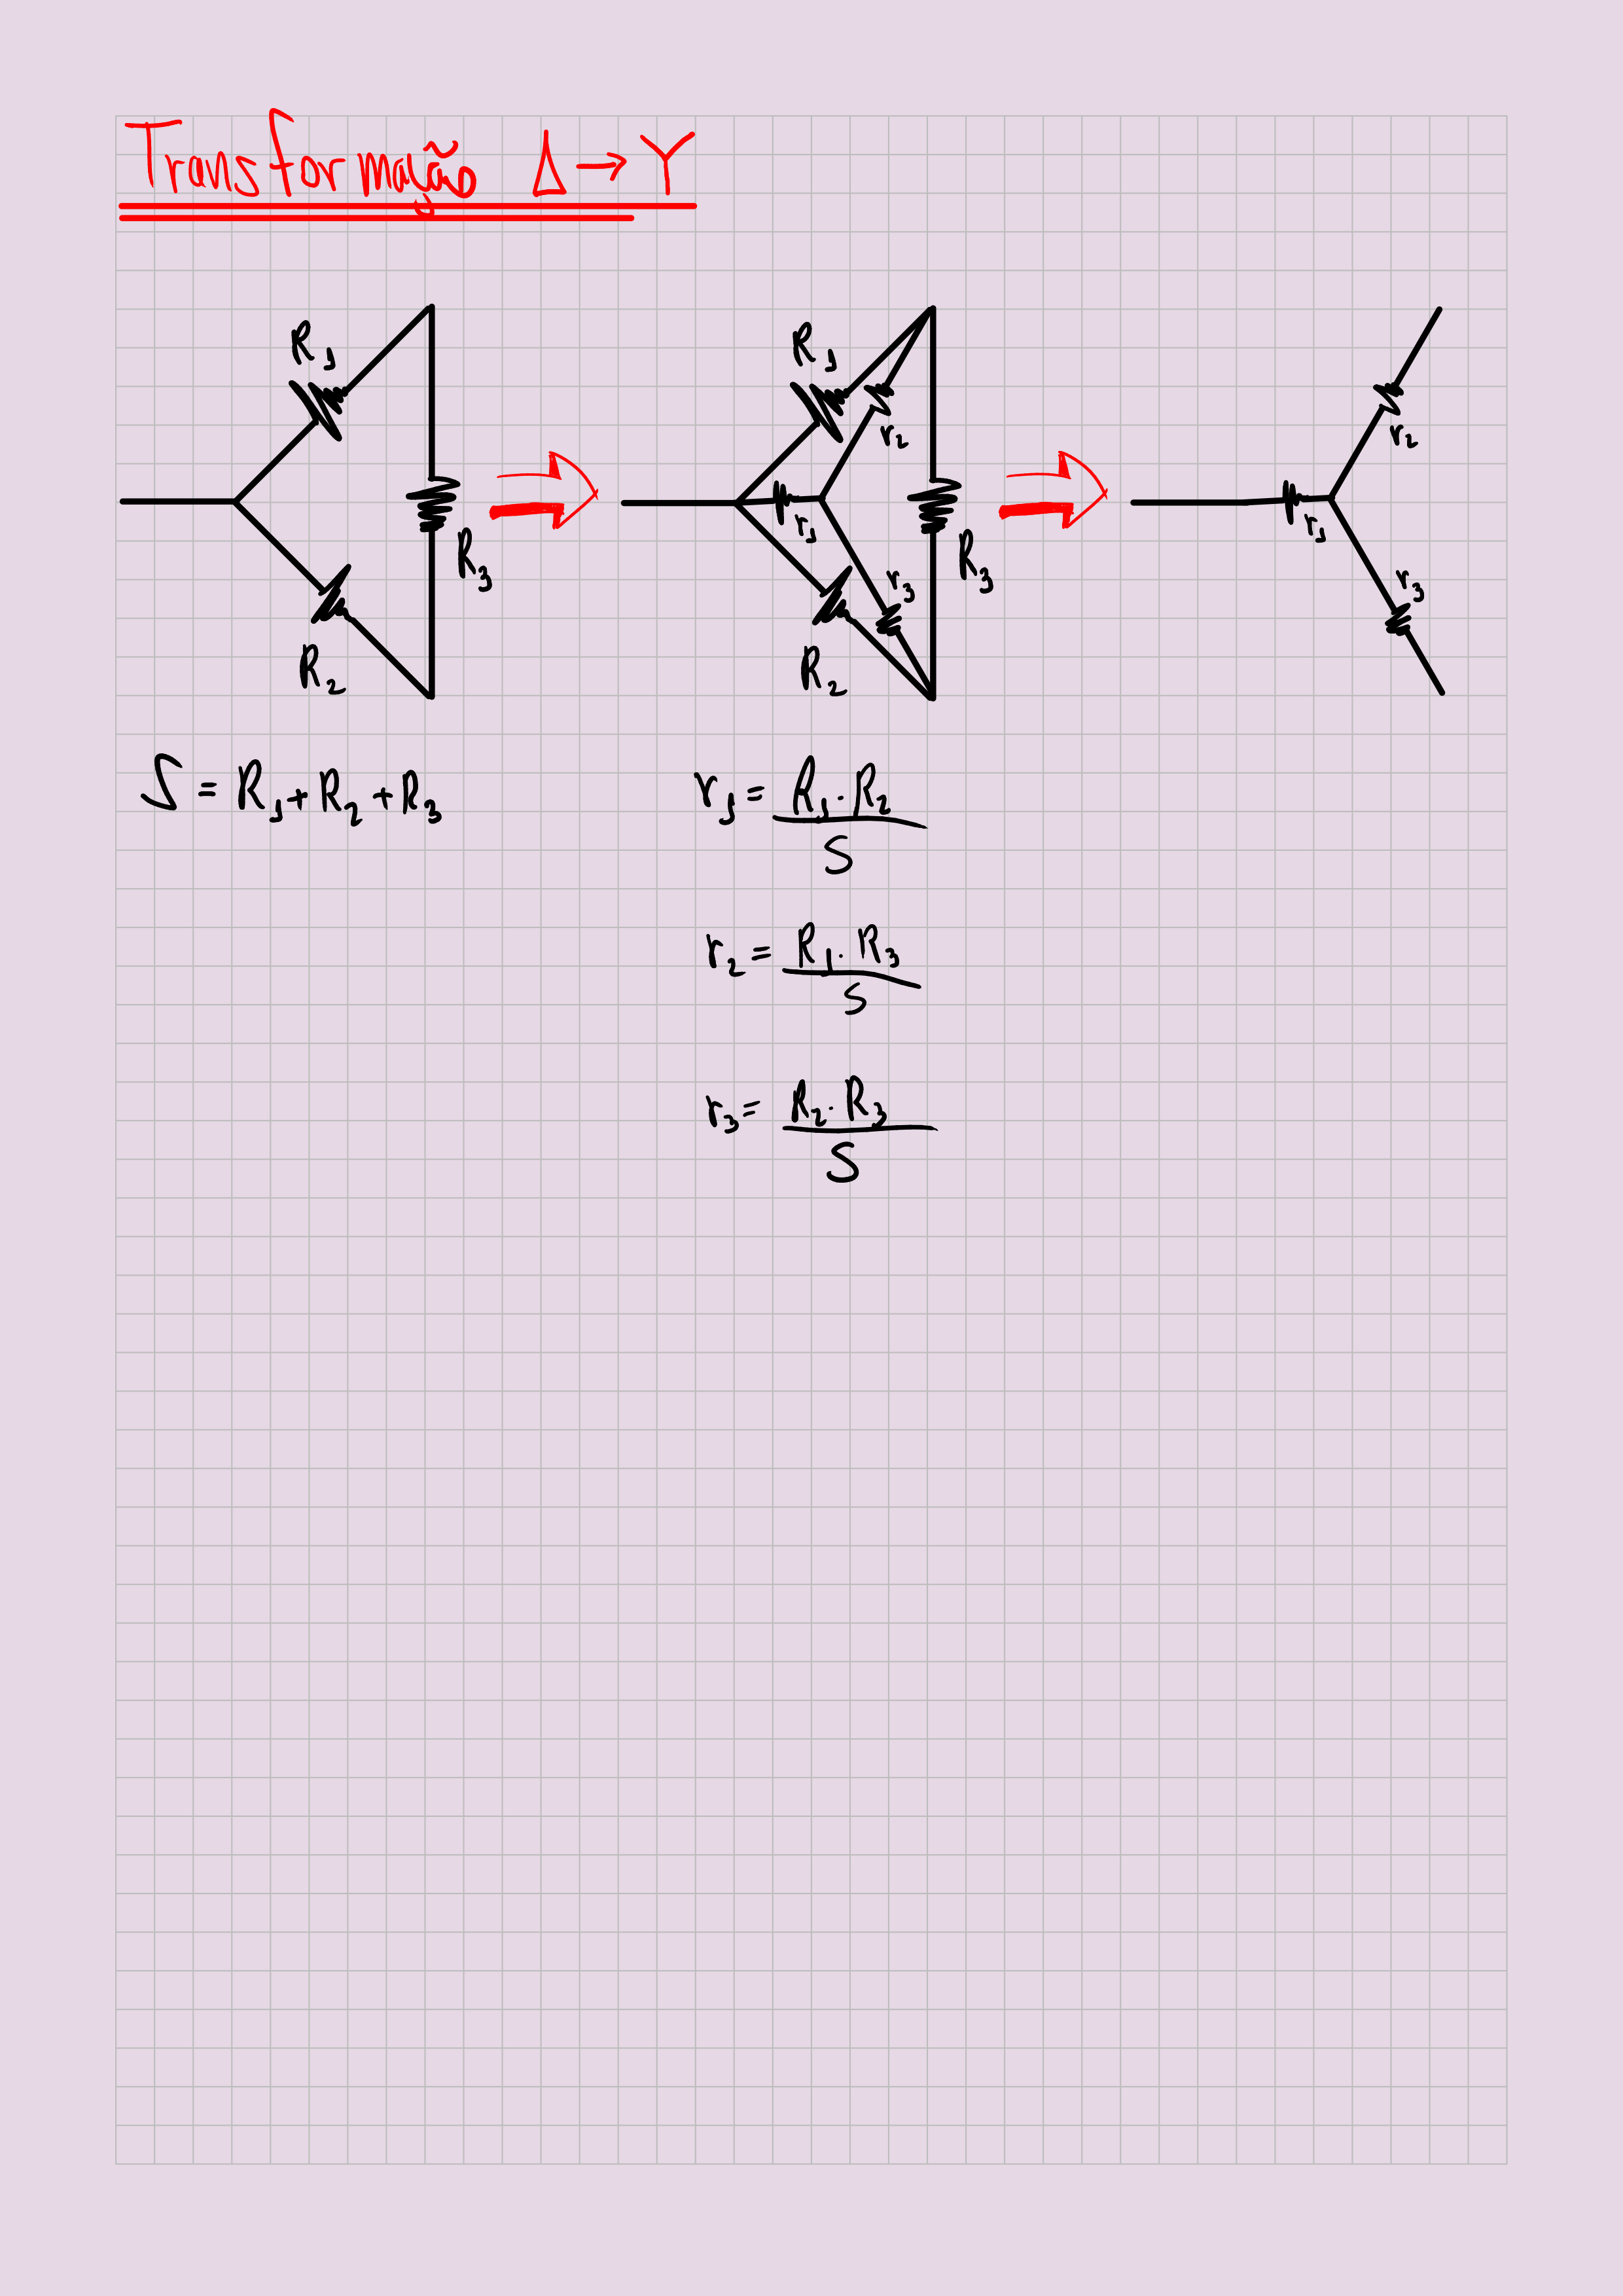 Transformação Δ → Y
R₁ R₁
r₂ r₂
r₁ r₁
R₃ R₃
r₃ r₃
R₂ R₂
S = R₁ + R₂ + R₃
r₁ = R₁ . R₂ / S
r₂ = R₁ . R₃ / S
r₃ = R₂ . R₃ / S